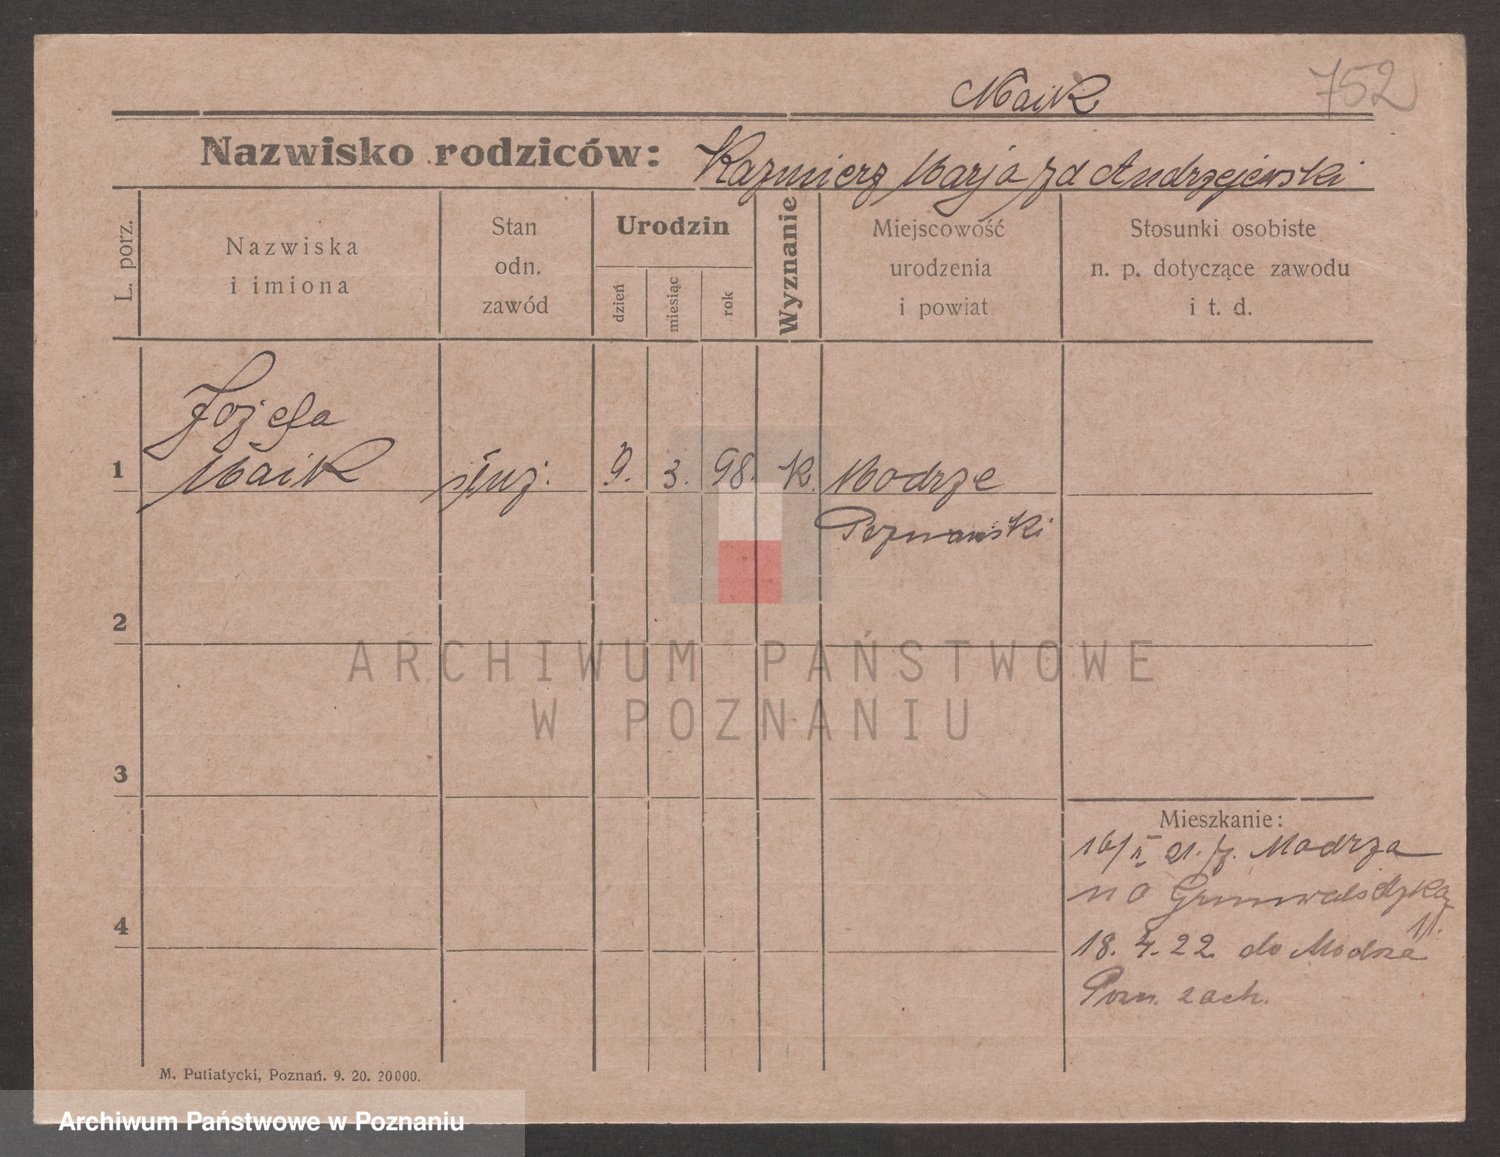 Maik 752
Nazwisko rodziców: Kazmierz Marja zd Andrzejewski
L. porz.
Nazwiska
i imiona
Stan
odn.
zawód
Urodzin
dzień
miesiąc
rok
Wyznanie
Miejscowość
urodzenia
i powiat
Stosunki osobiste
n. p. dotyczące zawodu
i t. d.
Jozefa
1 Maik służ. 9. 3. 98. K. Modrze
Poznanski
2
ARCHIWUM PAŃSTWOWE
W POZNANIU
3
Mieszkanie:
16/ 21. z. Modrza
na Grunwaldzką
11.
4
18. 4. 22 do Modrza
Pozn. zach.
M. Putiatycki, Poznań. 9. 20. 20000.
Archiwum Państwowe w Poznaniu